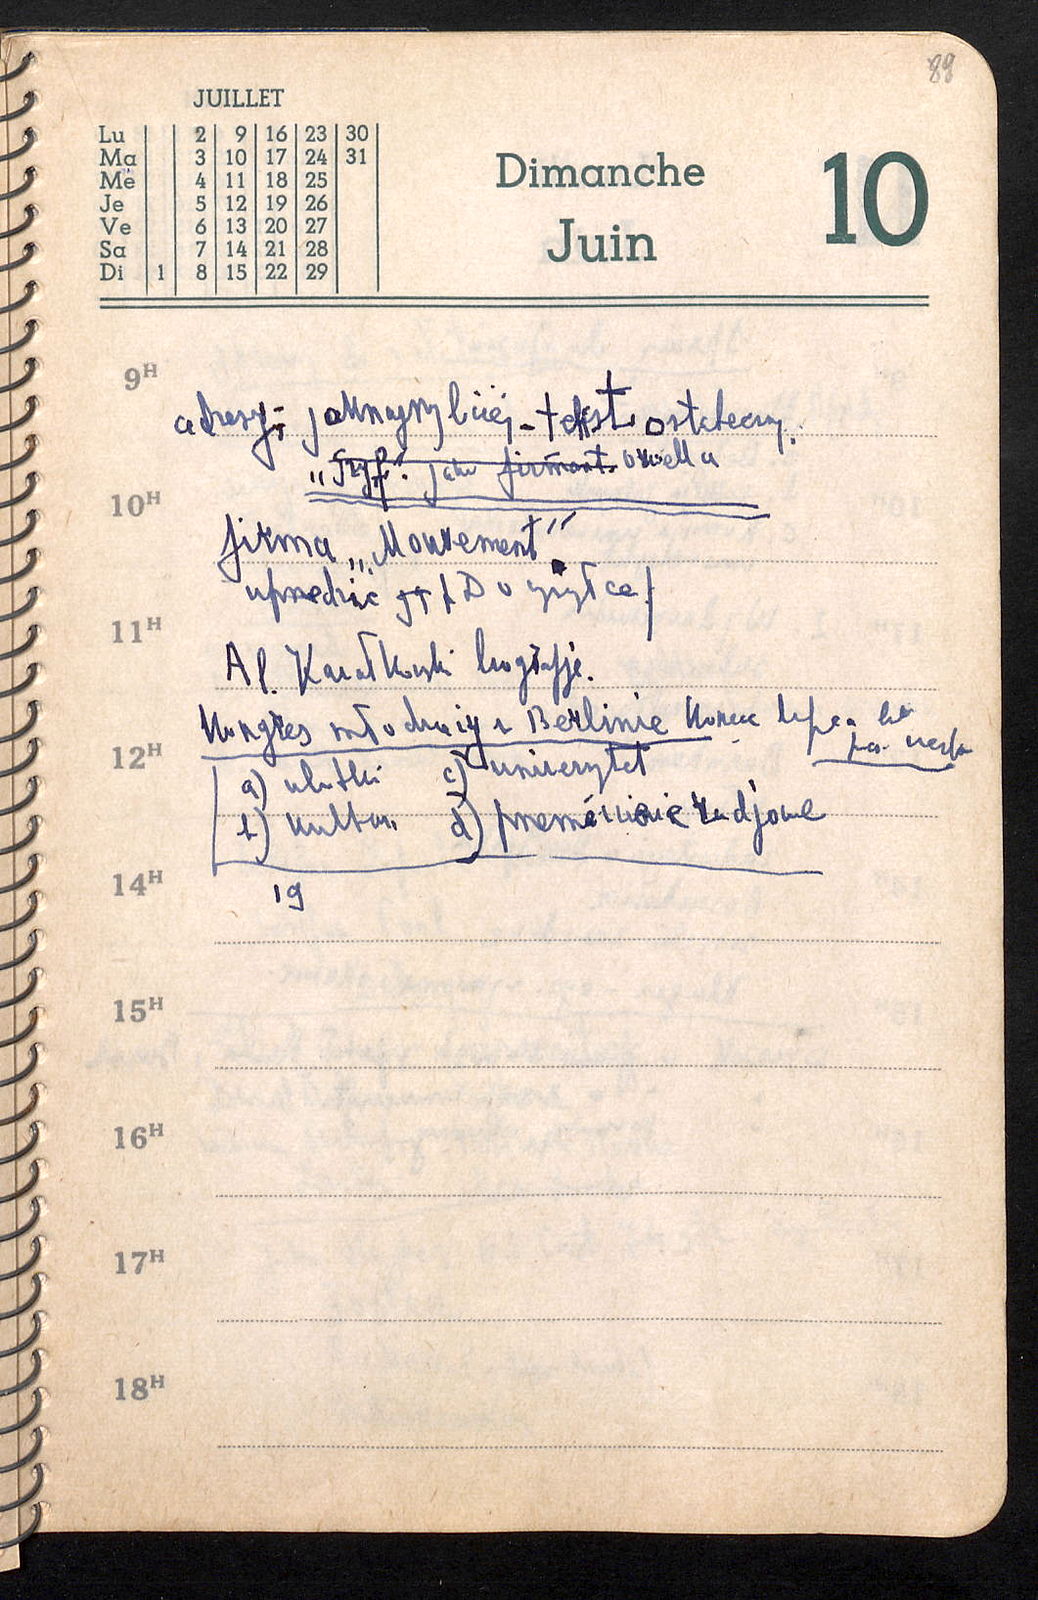 89
JUILLET
Lu 2 9 16 23 30
Ma 3 10 17 24 31
Me 4 11 18 25
Je 5 12 19 26
Ve 6 13 20 27
Sa 7 14 21 28
Di 1 8 15 22 29
Dimanche
Juin
10
9H
adresy; jaknajszybciej - tekst ostateczny.
jako firmant
10H
firma „Mouvement”
uprzedzić
11H
Al. Karatkowski
Kongres młodzieży w Berlinie Koniec lipca
12H
a) ulotki c) uniwersytet
b) d) przemówienie radjowe
14H
19
15H
16H
17H
18H